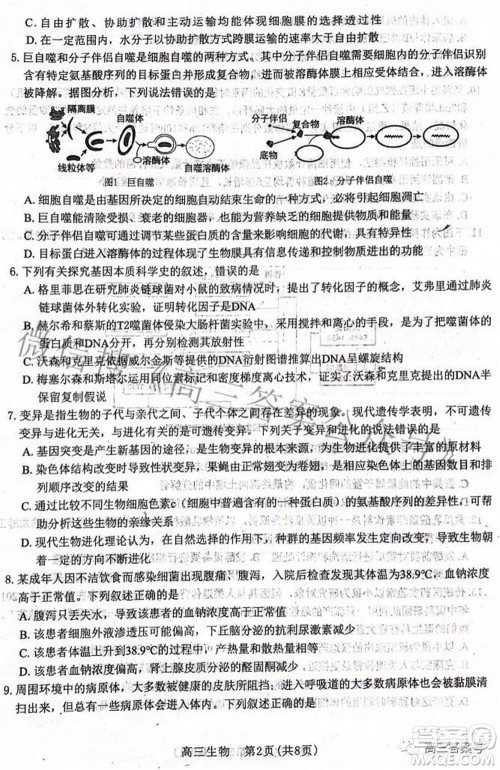 C. 自由扩散、协助扩散和主动运输均能体现细胞膜的选择透过性
D. 在一定范围内，水分子以协助扩散方式跨膜运输的速率大于自由扩散
5. 巨自噬和分子伴侣自噬是细胞自噬的两种方式。其中分子伴侣自噬需要细胞内的分子伴侣识别
含有特定氨基酸序列的目标蛋白并形成复合物，进而被溶酶体膜上相应受体结合，进入溶酶体
被降解。据图分析，下列说法错误的是
隔离膜
自噬体
线粒体等
溶酶体
自噬溶酶体
图1 巨自噬
分子伴侣
复合物
溶酶体
底物
图2 分子伴侣自噬
A. 细胞自噬是由基因所决定的细胞自动结束生命的一种方式，可以影响细胞凋亡
B. 巨自噬能清除受损、衰老的细胞器，也能为营养缺乏的细胞提供生存所需的物质和能量
C. 分子伴侣自噬可通过调节某些蛋白质的含量来影响细胞的代谢，并具有特异性
D. 目标蛋白进入溶酶体的过程体现了生物膜具有信息传递和功能
6. 下列有关探究基因本质科学史的叙述，错误的是
A. 格里菲思在研究肺炎链球菌对小鼠的致病情况时，提出了转化因子的概念，艾弗里通过肺炎
链球菌体外转化实验，证明转化因子是DNA
B. 赫尔希和蔡斯的T2噬菌体侵染大肠杆菌实验中，采用搅拌和离心的手段，是为了把噬菌体
的蛋白质和DNA分开，再分别检测其放射性
C. 沃森和克里克依据威尔金斯等提供的DNA衍射图谱推算出DNA呈螺旋结构
D. 梅塞尔森和斯塔尔运用同位素标记和密度梯度离心技术，证实了沃森和克里克提出的DNA半
保留复制假说
7. 变异是指生物的子代与亲代之间、子代个体之间存在差异的现象。现代遗传学表明，不可遗传
变异与进化无关，与进化有关的是可遗传变异。下列与变异和进化的说法错误的是
A. 基因突变是产生新基因的途径，是生物变异的根本来源，为生物进化提供了丰富的原材料
B. 染色体结构变异可以改变基因的种类，果蝇出现缺刻翅的变异改变了染色体上的基因数目和排
列顺序的结果
C. 通过比较不同生物细胞色素c(细胞中普遍含有的一种蛋白质)的氨基酸序列的差异性，可帮
助分析这些生物的亲缘关系
D. 现代生物进化理论认为，在自然选择的作用下，种群的基因频率发生定向改变，导致生物朝着
一定的方向不断进化
8. 某成年人因不洁饮食而感染细菌出现腹痛、腹泻，入院后检查发现体温为38.9℃，血钠浓度
高于正常值。下列叙述正确的是
A. 腹泻只丢失水，不丢失无机盐，导致该患者的血钠浓度高于正常值
B. 该患者细胞外液渗透压可能偏高，下丘脑分泌的抗利尿激素减少
C. 该患者体温升到38.9℃的过程中，产热量和散热量均增加
D. 该患者的血钠浓度偏高，肾上腺皮质分泌的醛固酮减少
9. 周围环境中的病原体，大多数被健康的皮肤所阻挡，进入呼吸道的大多数病原体也会被黏膜清
扫出来，但总有一些病原体能够突破身体的第一道防线。下列叙述正确的是
高三生物 第2页(共8页)
高三答案号